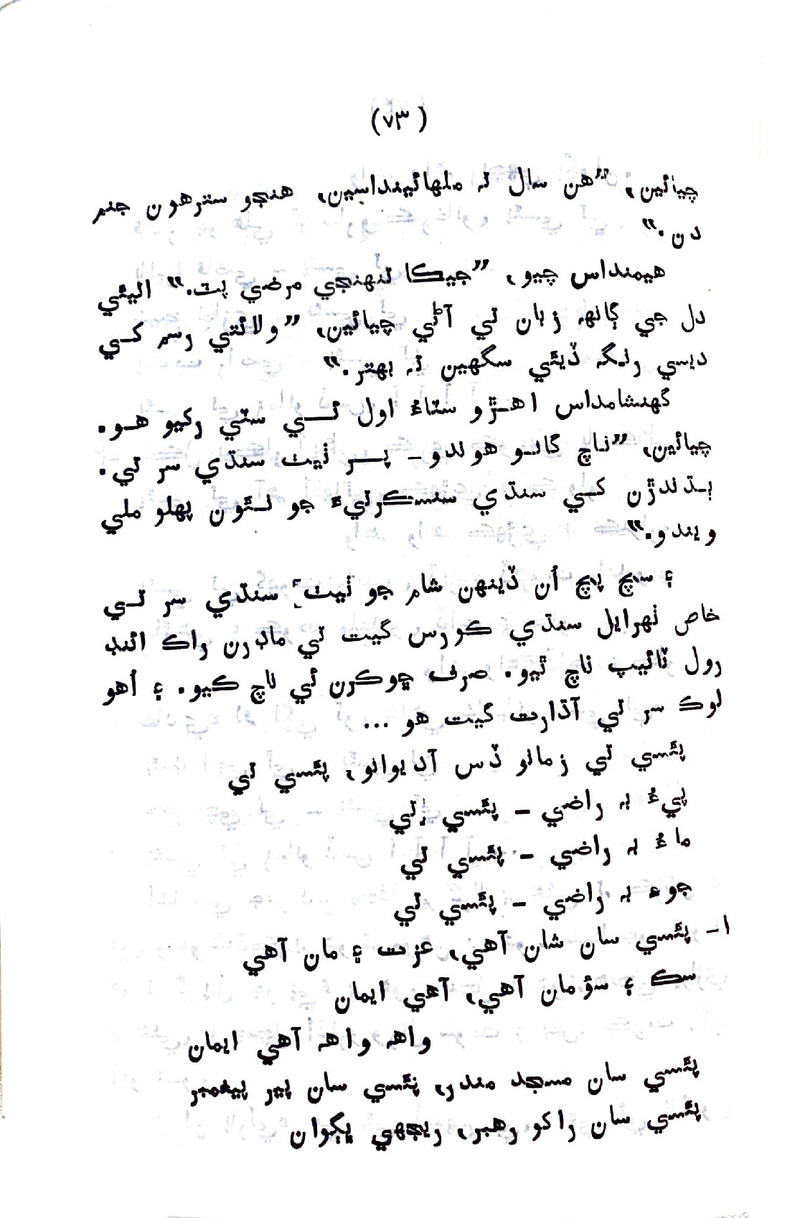 (٧٣)
چيائين، ”هن سال تہ ملهائينداسين، هنجو سترهون جنم
دن.“
هيمنداس چيو، ”جيڪا تنهنجي مرضي پٽ.“ اليئي
دل جي ڳالهہ زبان تي آڻي چيائين، ”ولائتي رسم کي
ديسي رنگہ ڏيئي سگهين تہ بهتر.“
گهنشامداس اهڙو سٽاءُ اول ئي سٽي رکيو هو.
چيائين، ”ناچ گانو هوندو – پر ٺيٺ سنڌي سر تي.
ٻڌندڙن کي سنڌي سنسڪرتيءَ جو نئون پهلو ملي
ويندو.“
۽ سچ پچ اُن ڏينهن شام جو ٺيٺ سنڌي سر تي
خاص ٺهرايل سنڌي ڪورس گيت تي ماڊرن راڪ ائنڊ
رول ٽائيپ ناچ ٿيو. صرف ڇوڪرن ئي ناچ ڪيو. ۽ اُهو
لوڪ سر تي آڌارت گيت هو ...
پئسي تي زمانو ڏس آ ديوانو، پئسي تي
پيءُ بہ راضي – پئسي تي
ماءُ بہ راضي – پئسي تي
جوءِ بہ راضي – پئسي تي
١– پئسي سان شان آهي، عزت ۽ مان آهي
سڪ ۽ سؤمان آهي، آهي ايمان
واهہ واهہ آهي ايمان
پئسي سان مسجد مندر، پئسي سان پير پيغمبر
پئسي سان راکو رهبر، ريجهي ڀڳوان